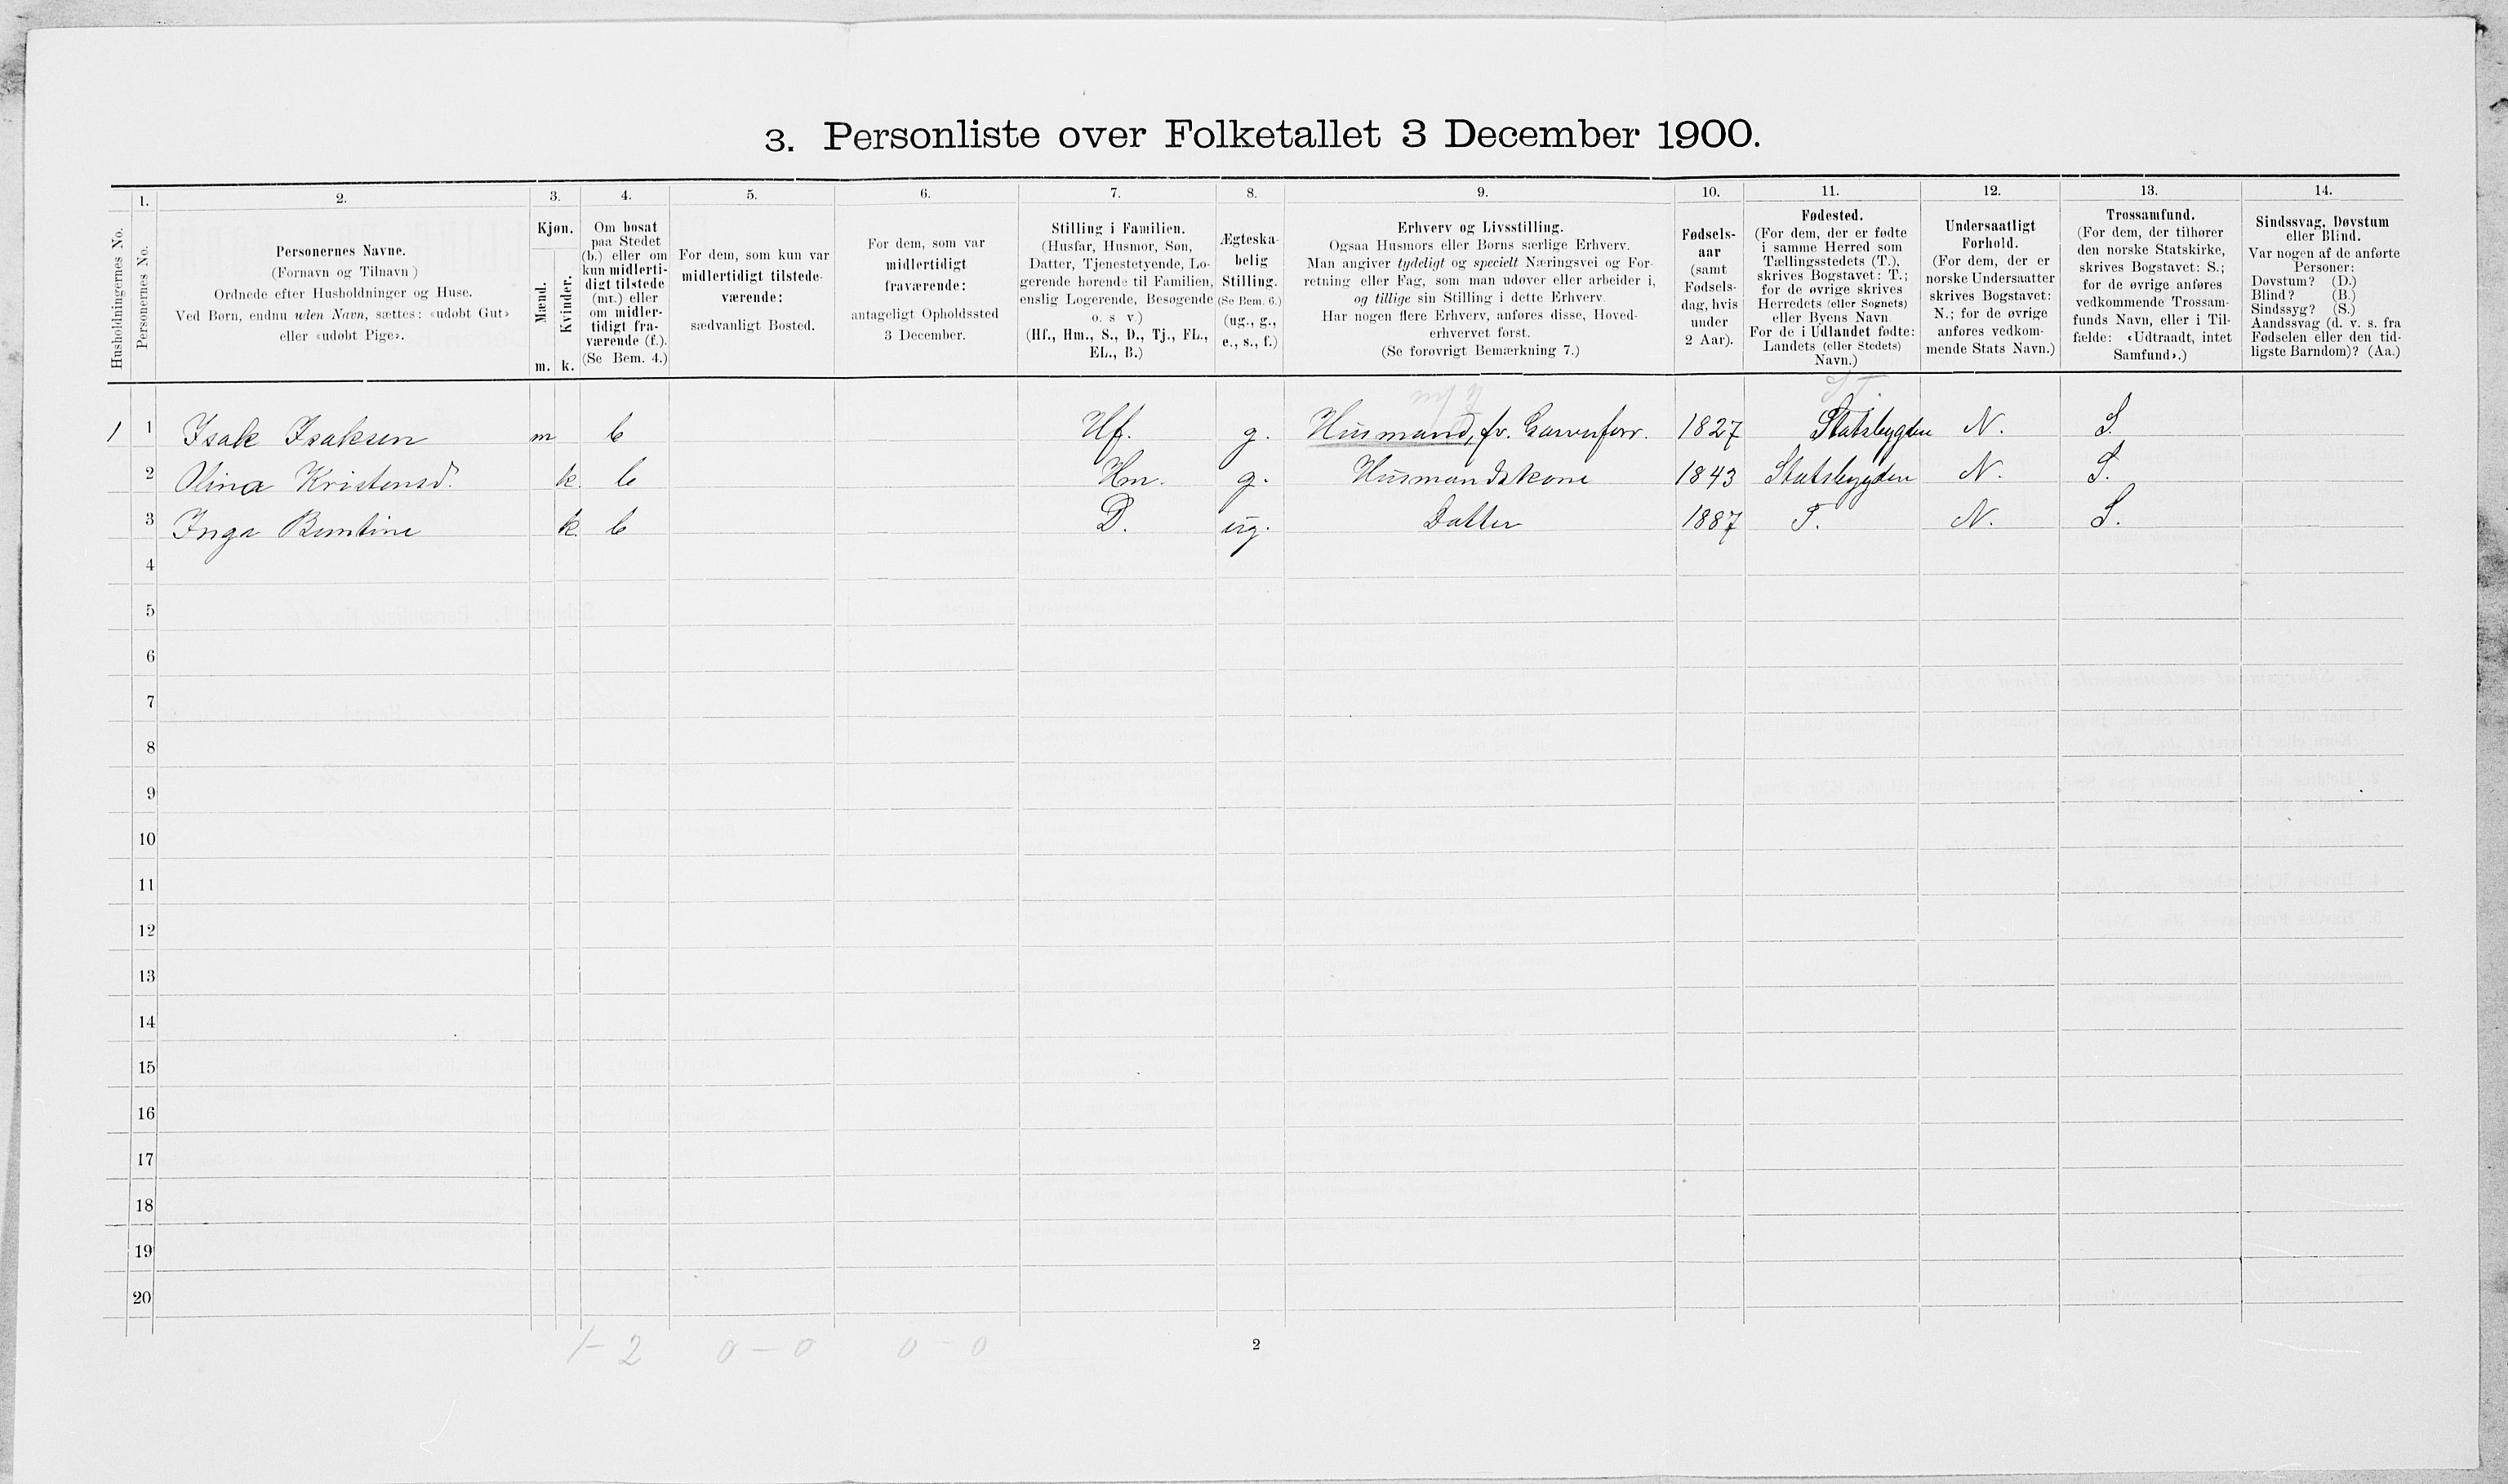 3. Personliste over Folketallet 3 December 1900.
1. 2. 3. 4. 5. 6. 7. 8. 9. 10. 11. 12. 13. 14.
Husholdningernes No.
Personernes No.
Personernes Navne.
(Fornavn og Tilnavn)
Ordnede efter Husholdninger og Huse.
Ved Børn, endnu uden Navn, sættes: «udøbt Gut»
eller «udøbt Pige».
Kjøn.
Mænd.
Kvinder.
m. k.
Om bosat
paa Stedet
(b.) eller om
kun midlerti-
digt tilstede
(mt.) eller
om midler-
tidigt fra-
værende (f.).
(Se Bem. 4.)
For dem, som kun var
midlertidigt tilstede-
værende:
sædvanligt Bosted.
For dem, som var
midlertidigt
fraværende:
antageligt Opholdssted
3 December.
Stilling i Familien.
(Husfar, Husmor, Søn,
Datter, Tjenestetyende, Lo-
gerende hørende til Familien,
enslig Logerende, Besøgende
o. s v.)
(Hf., Hm., S., D., Tj., FL.,
EL., B.)
Ægteska-
belig
Stilling.
(Se Bem. 6.)
(ug., g.,
e., s., f.)
Erhverv og Livsstilling.
Ogsaa Husmors eller Børns særlige Erhverv.
Man angiver tydeligt og specielt Næringsvei og For-
retning eller Fag, som man udøver eller arbeider i,
og tillige sin Stilling i dette Erhverv.
Har nogen flere Erhverv, anføres disse, Hoved-
erhvervet først.
(Se forøvrigt Bemærkning 7.)
Fødsels-
aar
(samt
Fødsels-
dag, hvis
under
2 Aar).
Fødested.
(For dem, der er fødte
i samme Herred som
Tællingsstedets (T.),
skrives Bogstavet: T.;
for de øvrige skrives
Herredets (eller Sognets)
eller Byens Navn.
For de i Udlandet fødte:
Landets (eller Stedets)
Navn.)
Undersaatligt
Forhold.
(For dem, der er
norske Undersaatter
skrives Bogstavet:
N.; for de øvrige
anføres vedkom-
mende Stats Navn.)
Trossamfund.
(For dem, der tilhører
den norske Statskirke,
skrives Bogstavet: S.;
for de øvrige anføres
vedkommende Trossam-
funds Navn, eller i Til-
fælde: «Udtraadt, intet
Samfund».)
Sindssvag, Døvstum
eller Blind.
Var nogen af de anførte
Personer:
Døvstum? (D.)
Blind? (B.)
Sindssyg? (S.)
Aandssvag (d. v. s. fra
Fødselen eller den tid-
ligste Barndom)? (Aa.)
1 1 Isak Isaksen m b Hf. g. Husmand, fv. 1827 Statsbygden N. S.
2 Olina Kristensd. k. b Hm. g. Husmandskone 1843 Statsbygden N. S.
3 Inga Berntine k. b D. ug. Datter 1887 T. N. S.
4
5
6
7
8
9
10
11
12
13
14
15
16
17
18
19
20
1-2 0-0 0-0 2